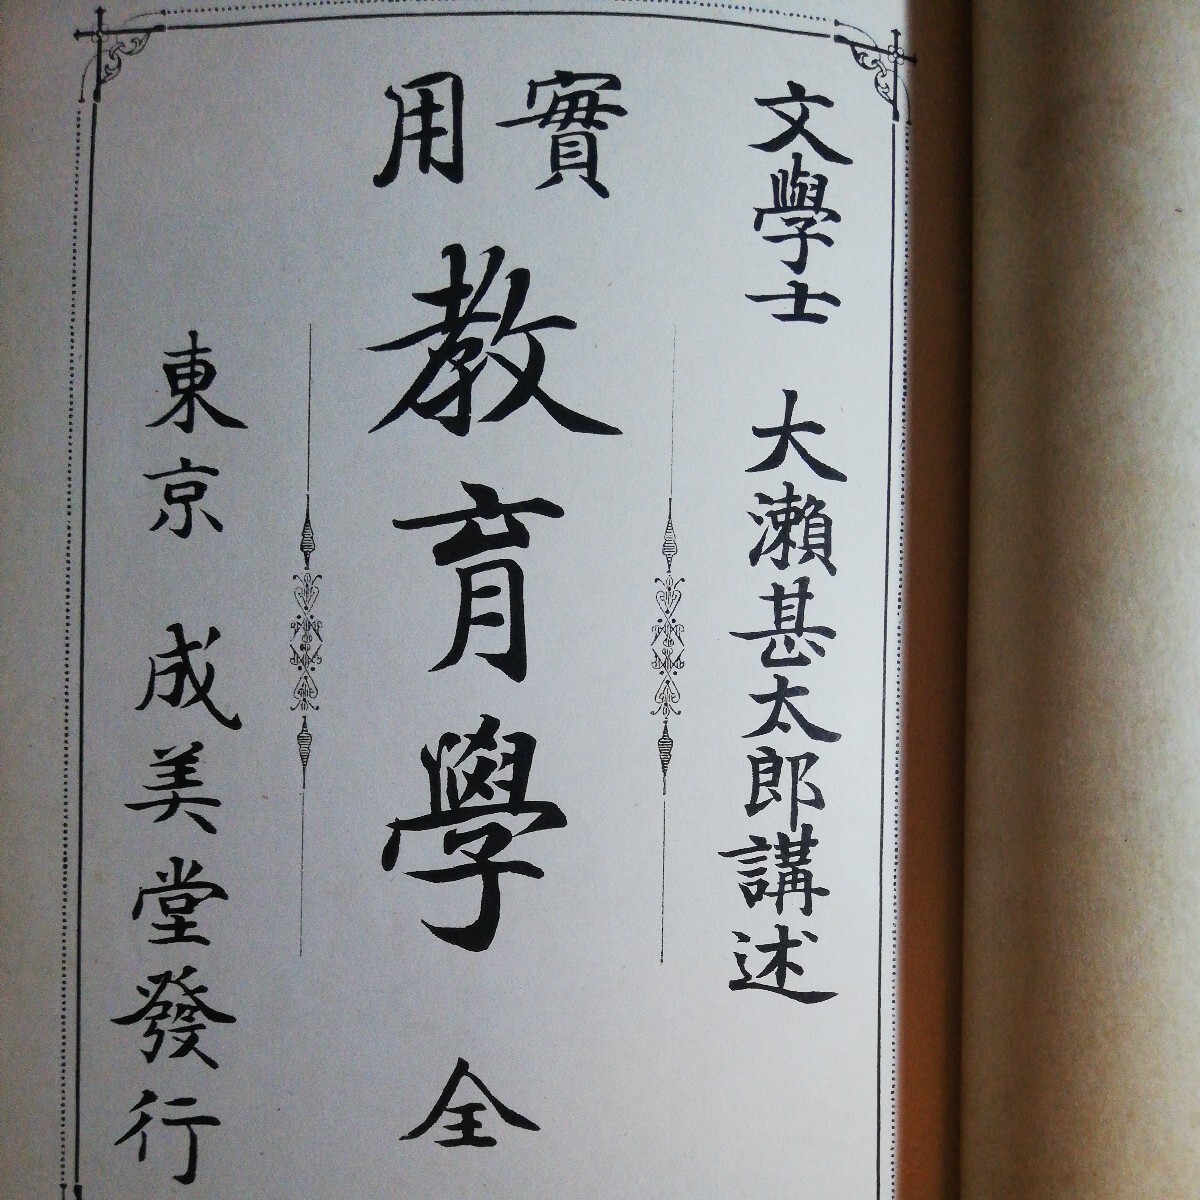 文學士 大瀨甚太郎講述
實用 教育學 全
東京 成美堂發行